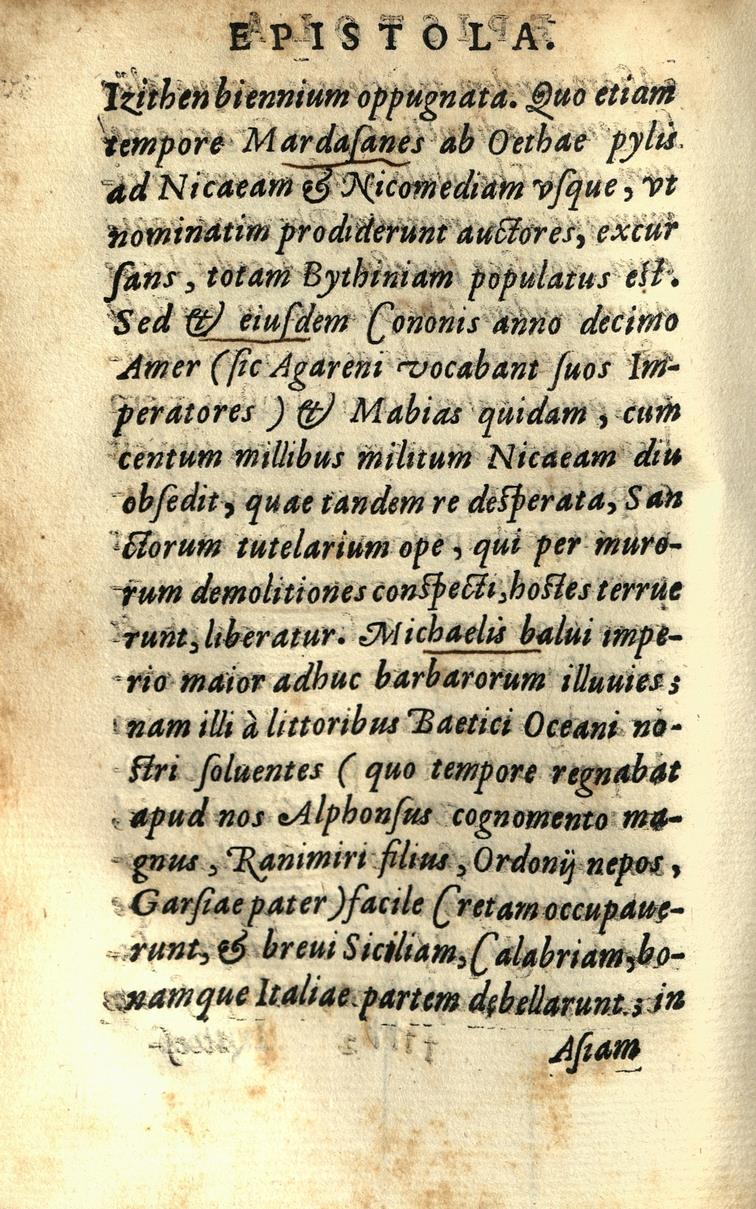 EPISTOLA.
Izithen biennium oppugnata. Quo etiam
tempore Mardasanes ab Oethae pylis
ad Nicaeam & Nicomediam vsque, vt
nominatim prodiderunt auctores, excur
sans, totam Bythiniam populatus est.
Sed & eiusdem Cononis anno decimo
Amer (sic Agareni vocabant suos Im-
peratores ) & Mabias quidam, cum
centum millibus militum Nicaeam diu
obsedit, quae tandem re desperata, San
ctorum tutelarium ope, qui per muro-
rum demolitiones conspecti, hostes terrue
runt, liberatur. Michaelis balui impe-
rio maior adhuc barbarorum illuuies;
nam illi à littoribus Baetici Oceani no-
stri soluentes ( quo tempore regnabat
apud nos Alphonsus cognomento ma-
gnus, Ranimiri filius, Ordonij nepos,
Garsiae pater) facile Cretam occupaue-
runt, & breui Siciliam, Calabriam, bo-
namque Italiae partem debellarunt; in
Asiam